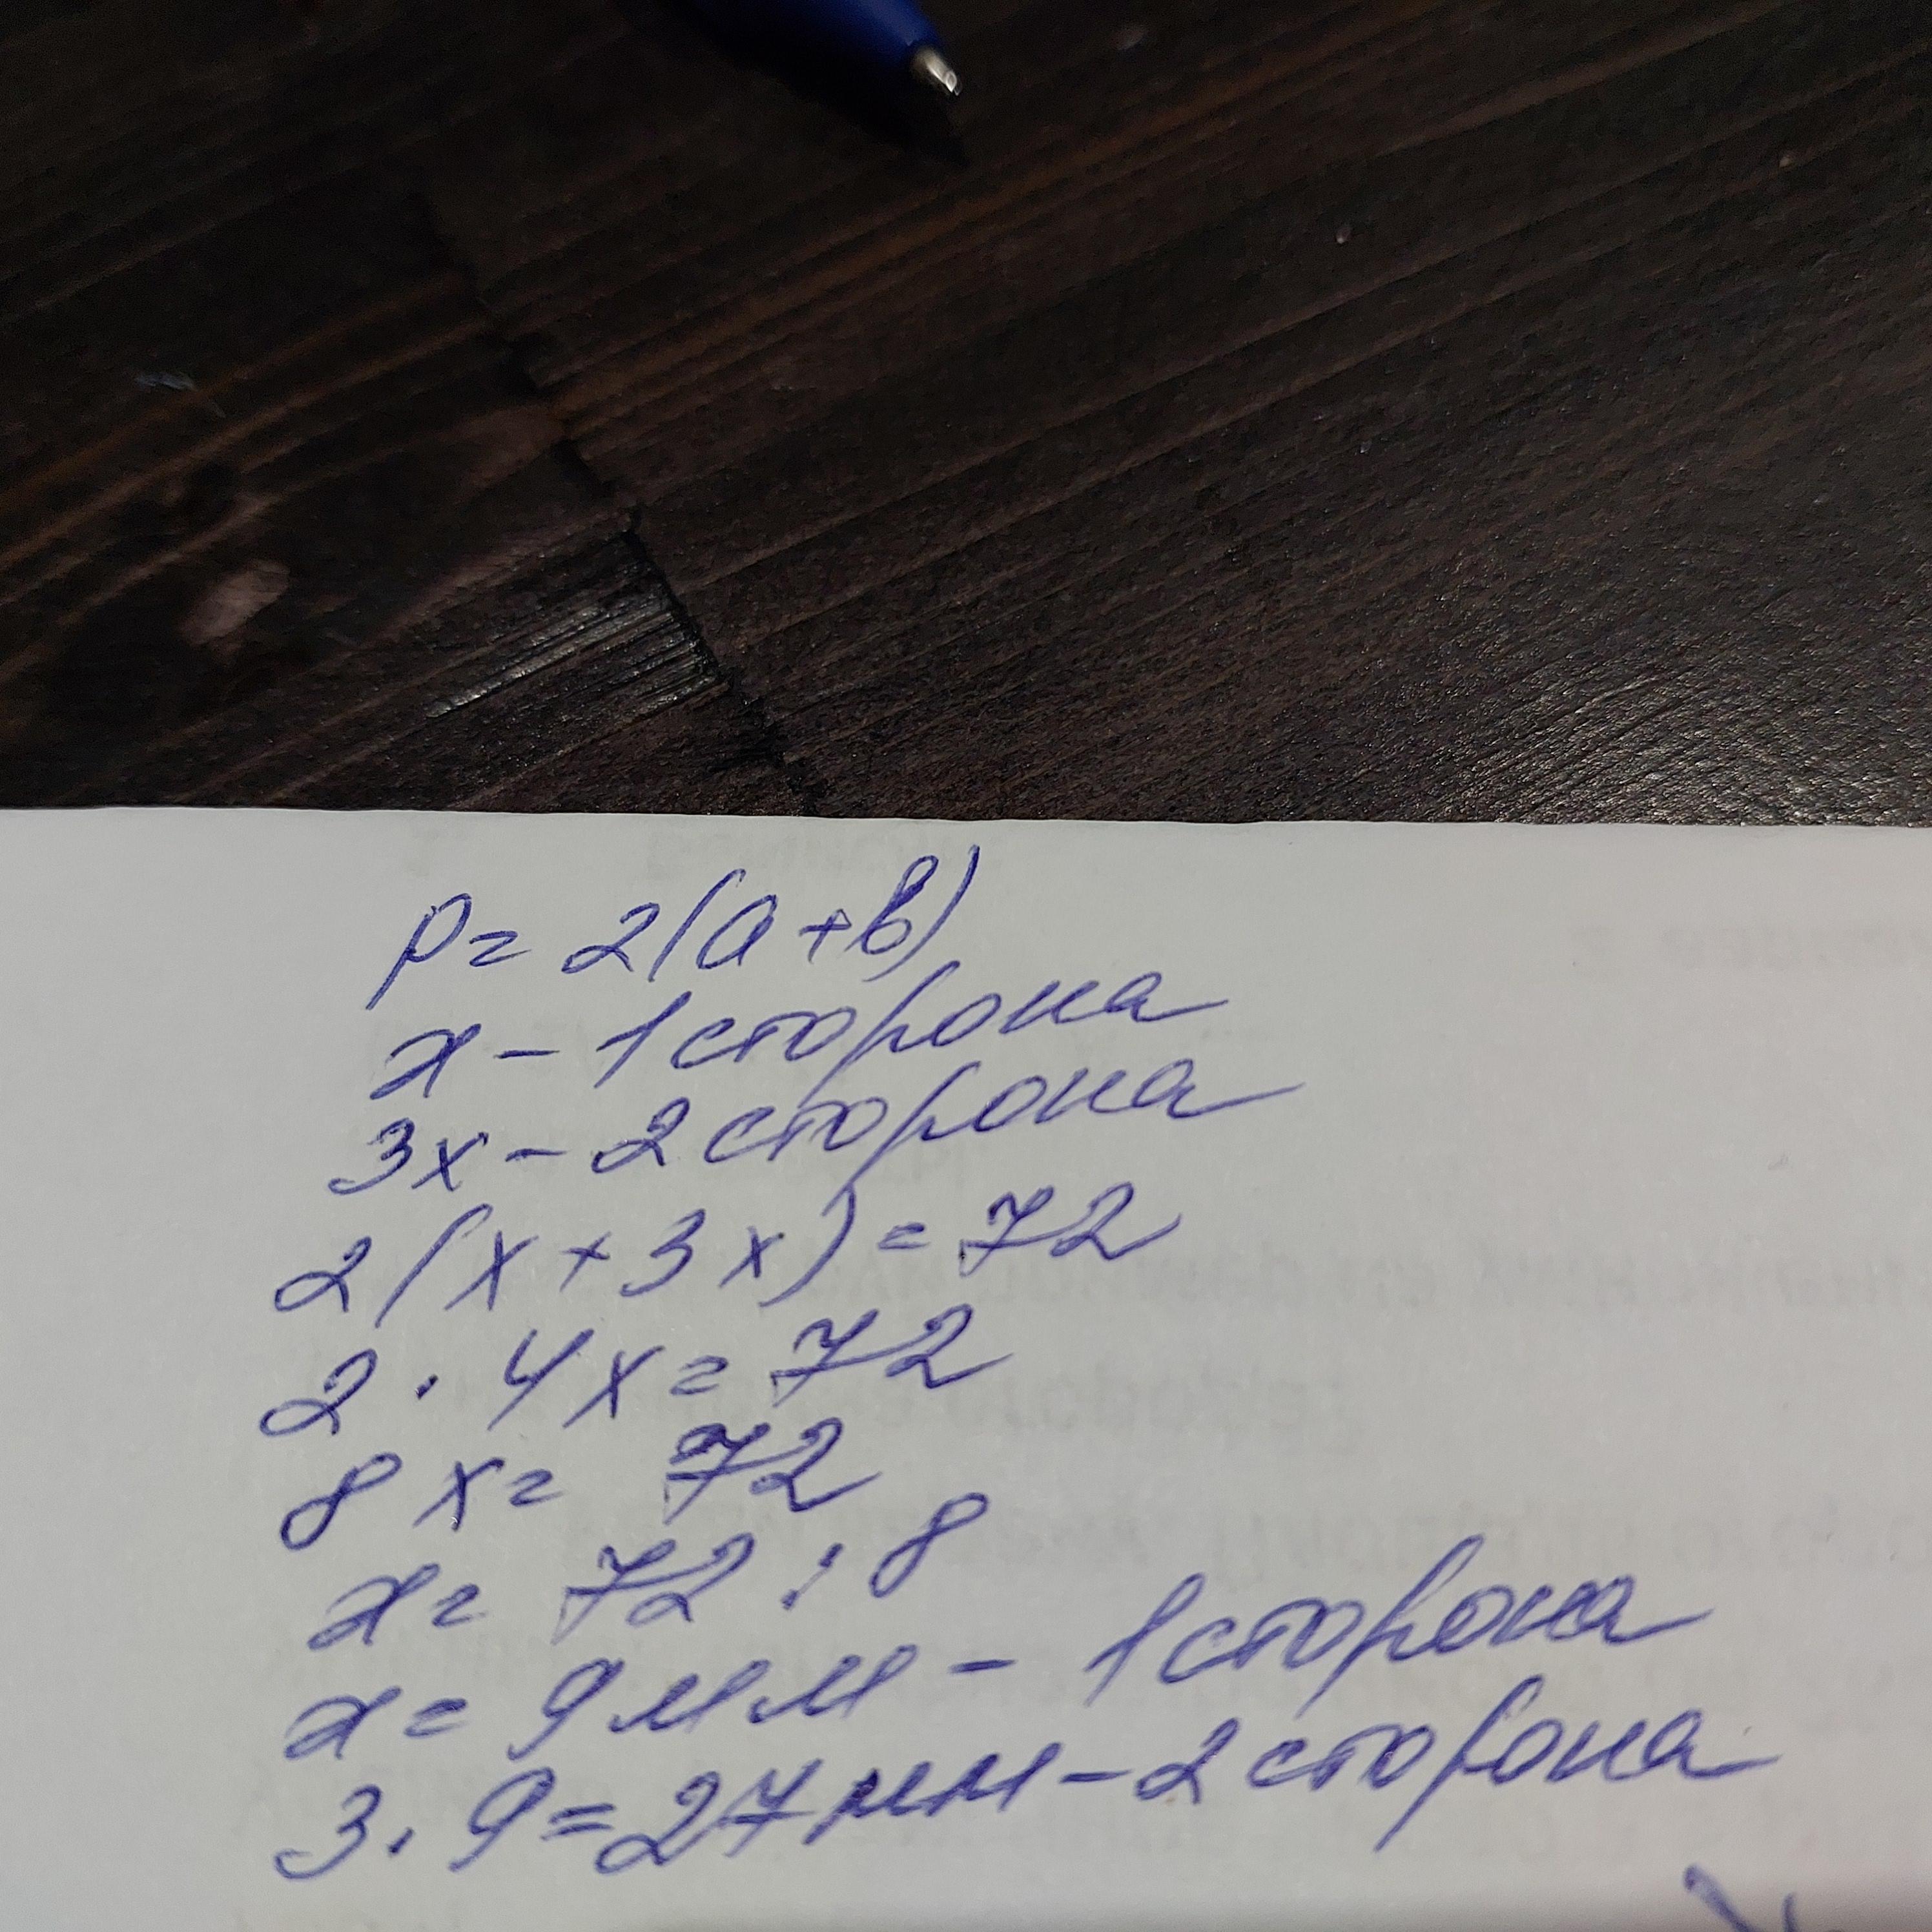 P = 2(a + b)
x - 1 сторона
3x - 2 сторона
2(x + 3x) = 72
2 · 4x = 72
8x = 72
x = 72 : 8
x = 9 мм - 1 сторона
3 · 9 = 27 мм - 2 сторона